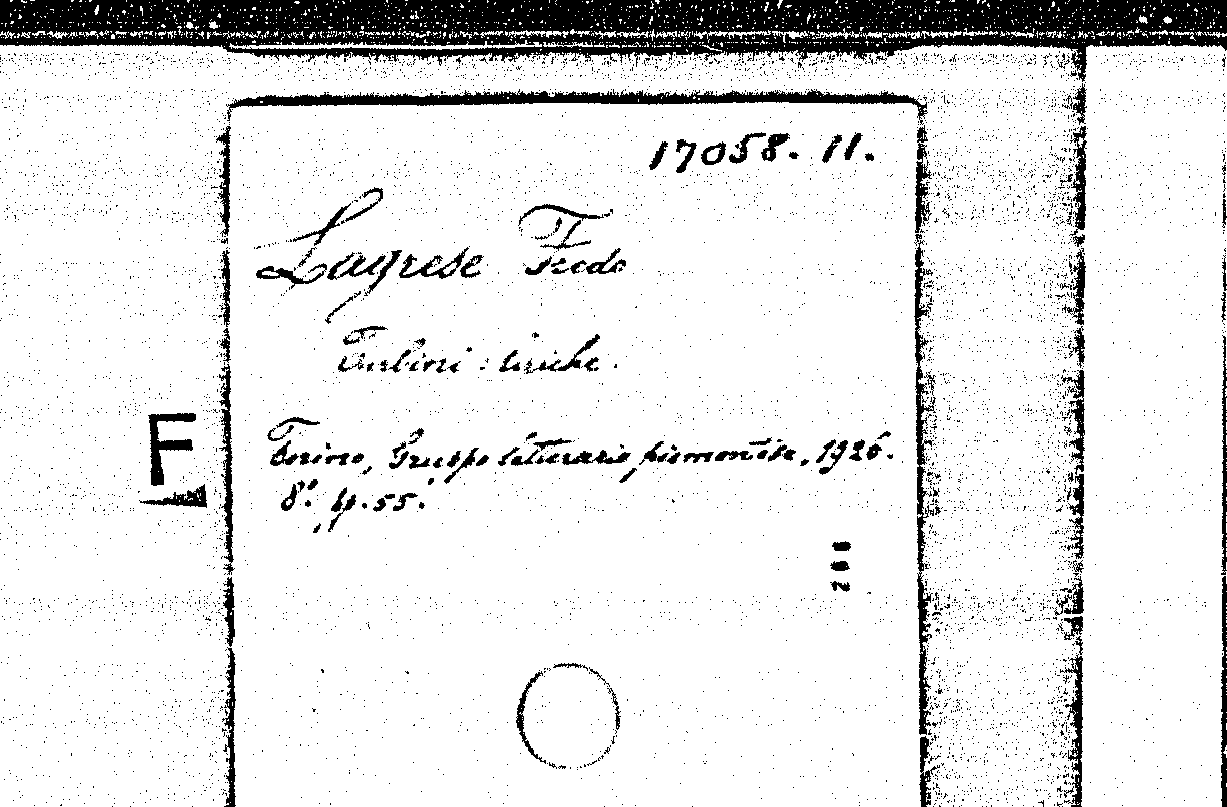 17058. 11.
Lagrese Fredo
Turbini : liriche.
Torino, Gruppo letterario piemontese, 1926.
8.° p. 55.
F